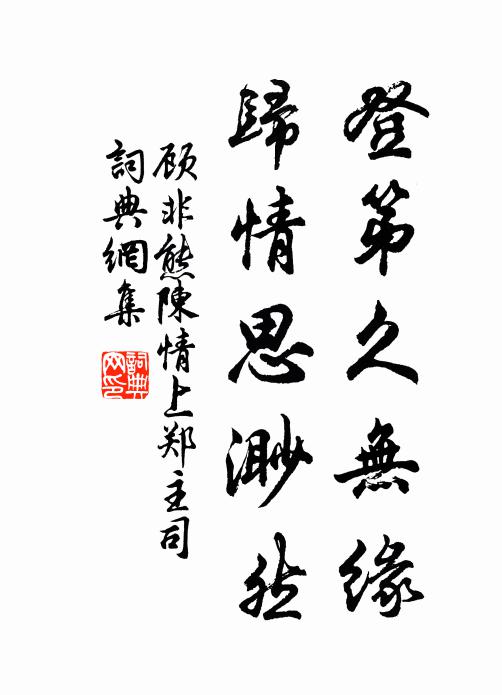 登第久無緣
歸情思渺然
顾非熊陳情上郑主司
詞典網集
詞典网印